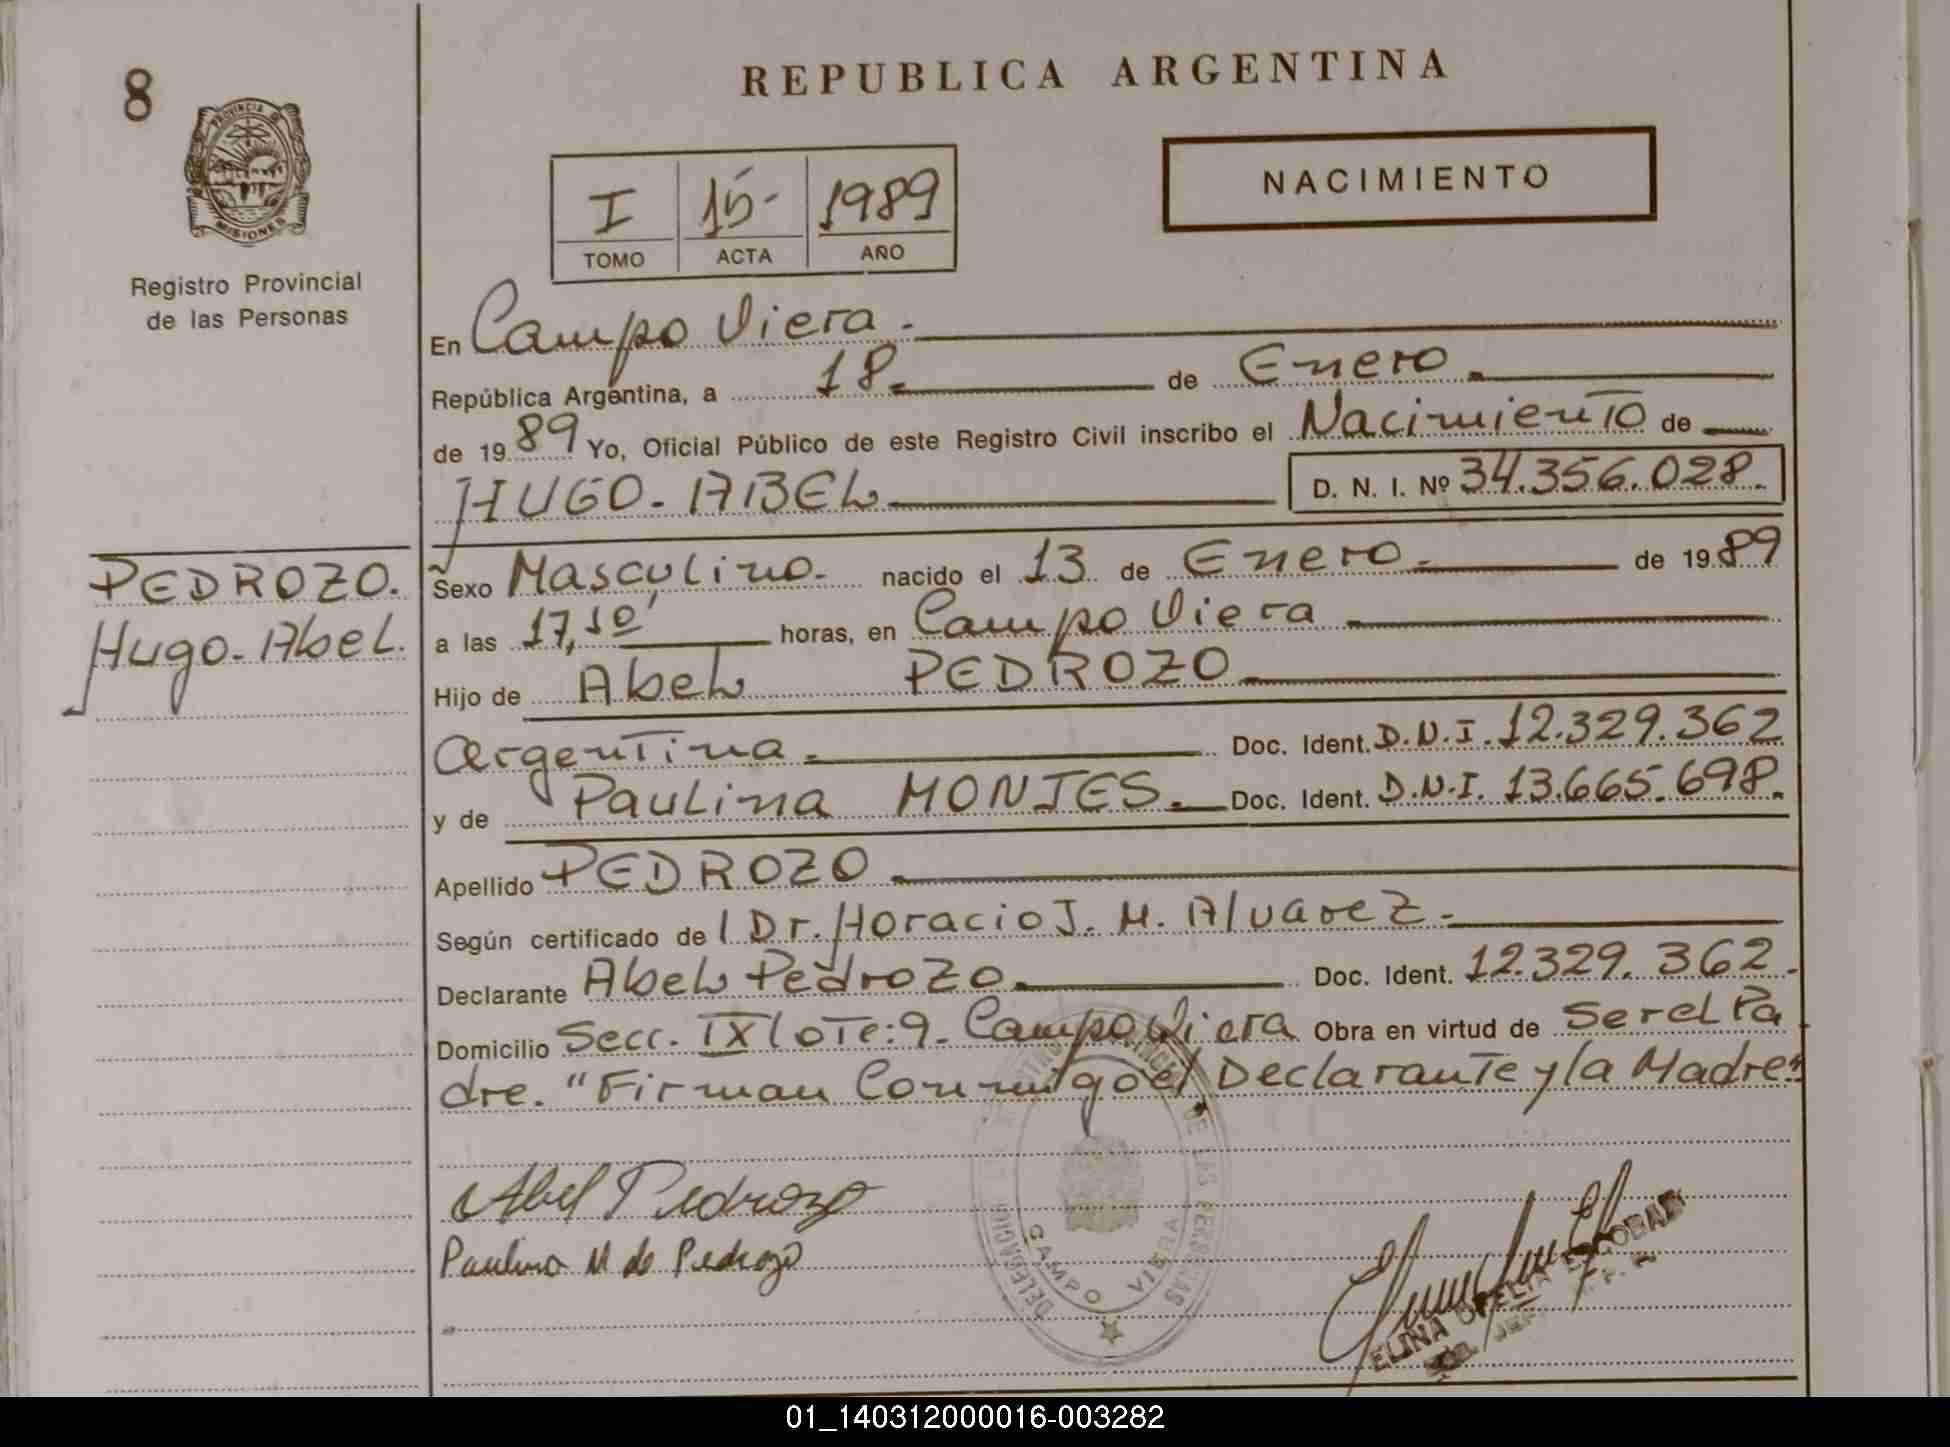 8
REPUBLICA ARGENTINA
PROVINCIA DE
MISIONES
Registro Provincial
de las Personas
I 15- 1989
TOMO ACTA AÑO
NACIMIENTO
En Campo Viera.
República Argentina, a 18 de Enero
de 1989 Yo, Oficial Público de este Registro Civil inscribo el Nacimiento de
HUGO-ABEL D. N. I. Nº 34.356.028.
PEDROZO.
Hugo-Abel.
Sexo Masculino- nacido el 13 de Enero de 1989
a las 17,10' horas, en Campo Viera
Hijo de Abel PEDROZO
Argentina Doc. Ident. D.N.I. 12.329.362
y de Paulina MONTES. Doc. Ident. D.N.I. 13.665.698.
Apellido PEDROZO
Según certificado de l Dr. Horacio J. M. Alvarez-
Declarante Abel Pedrozo Doc. Ident. 12.329.362-
Domicilio Secc. IX lote: 9- Campo Viera Obra en virtud de Ser el Pa
dre. "Firman Conmigo el Declarante y la Madre"
Abel Pedrozo
Paulina M de Pedrozo
DE LAS PERSONAS
DELEGACION
CAMPO VIERA
ELINA OFELIA ESCOBAR
01_140312000016-003282